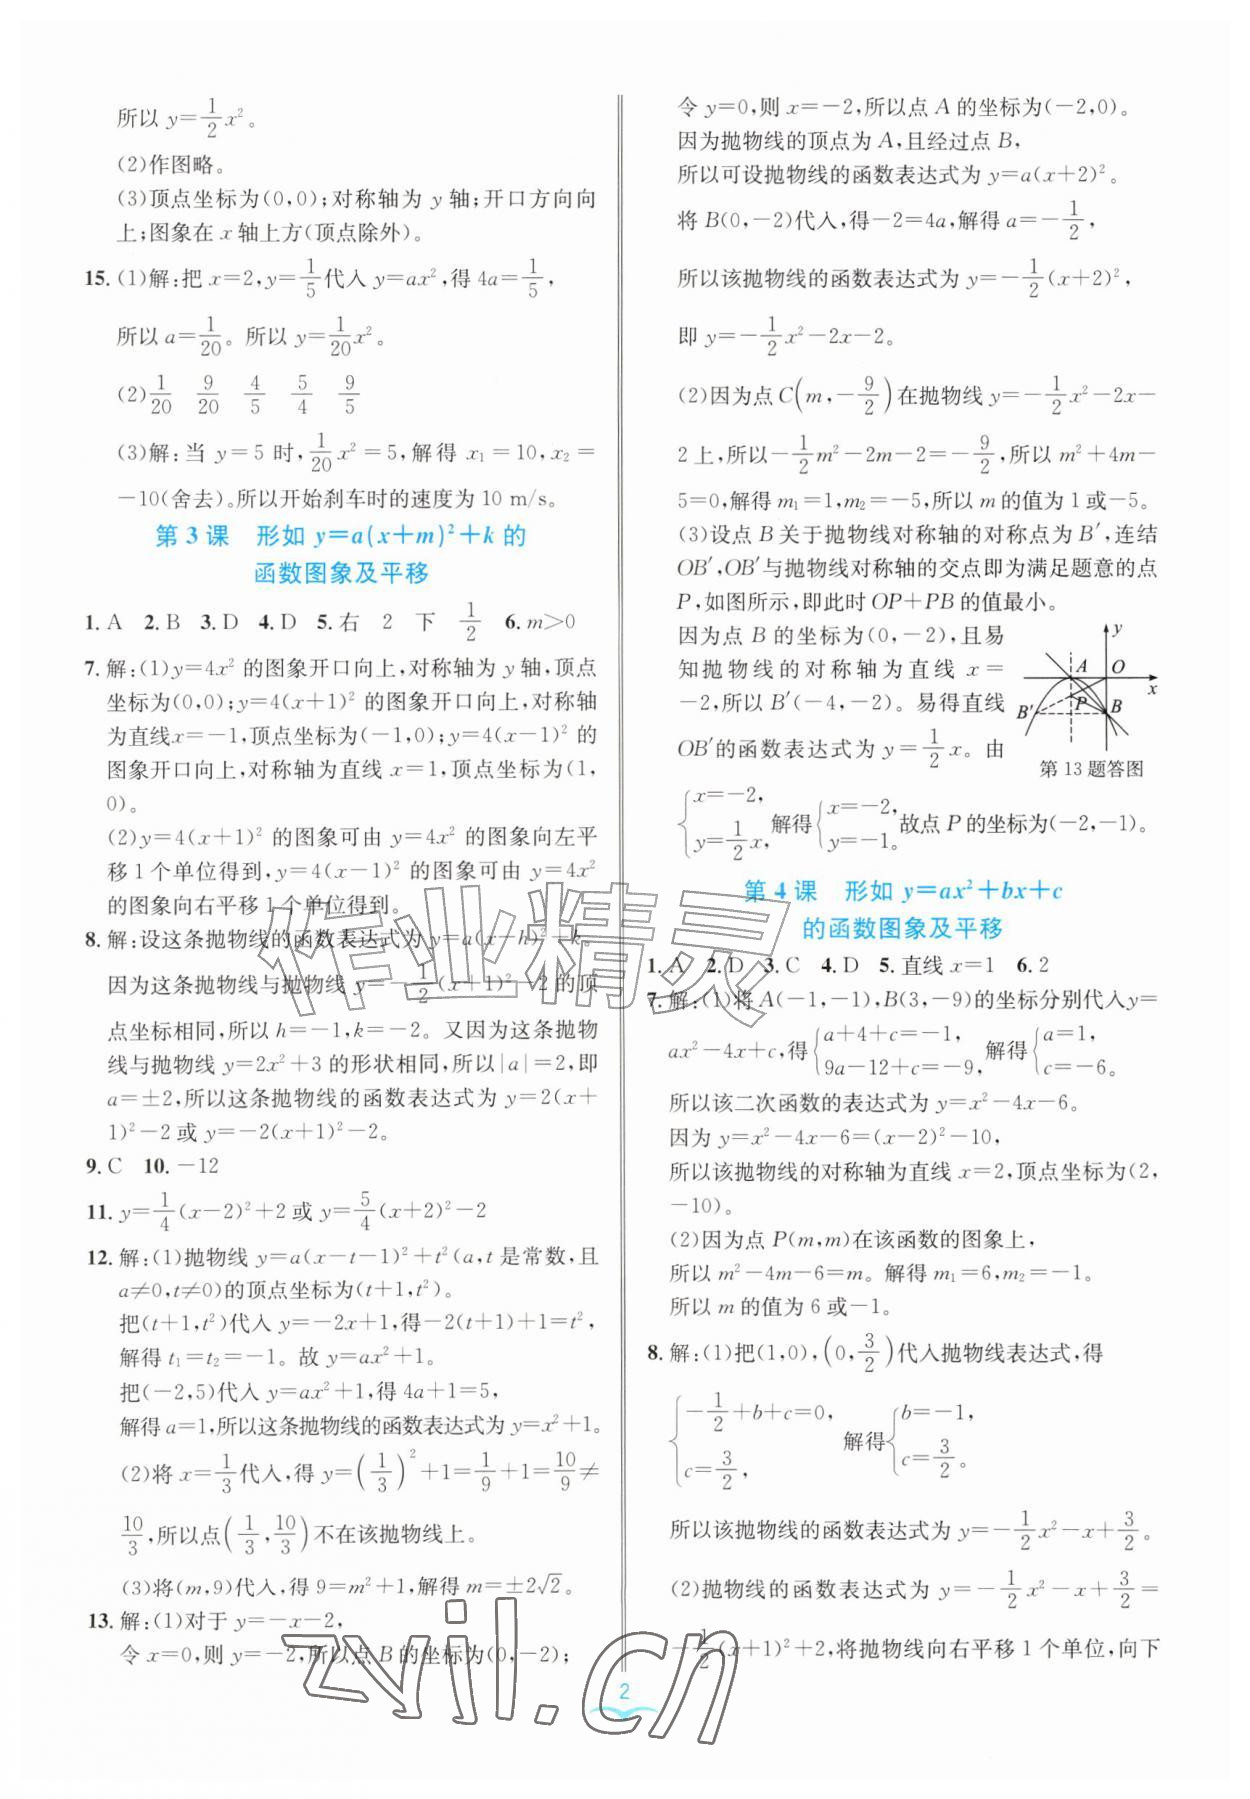 所以 y=1/2x²。
(2)作图略。
(3)顶点坐标为(0,0);对称轴为 y 轴;开口方向向
上;图象在 x 轴上方(顶点除外)。
15. (1)解:把 x=2,y=1/5代入 y=ax²,得 4a=1/5,
所以 a=1/20。所以 y=1/20x²。
(2)1/20 9/20 4/5 5/4 9/5
(3)解:当 y=5 时,1/20x²=5,解得 x₁=10,x₂=
-10(舍去)。所以开始刹车时的速度为 10 m/s。
第 3 课 形如 y=a(x+m)²+k 的
函数图象及平移
1. A 2. B 3. D 4. D 5. 右 2 下 1/2 6. m>0
7. 解:(1)y=4x² 的图象开口向上,对称轴为 y 轴,顶点
坐标为(0,0);y=4(x+1)² 的图象开口向上,对称轴
为直线x=-1,顶点坐标为(-1,0);y=4(x-1)² 的
图象开口向上,对称轴为直线 x=1,顶点坐标为(1,
0)。
(2)y=4(x+1)² 的图象可由 y=4x² 的图象向左平
移 1 个单位得到,y=4(x-1)² 的图象可由 y=4x²
的图象向右平移 1 个单位得到。
8. 解:设这条抛物线的函数表达式为 y=a(x-h)²+k。
因为这条抛物线与抛物线 y=-1/2(x+1)²-2 的顶
点坐标相同,所以 h=-1,k=-2。又因为这条抛物
线与抛物线 y=2x²+3 的形状相同,所以|a|=2,即
a=±2,所以这条抛物线的函数表达式为 y=2(x+
1)²-2 或 y=-2(x+1)²-2。
9. C 10. -12
11. y=1/4(x-2)²+2 或 y=5/4(x+2)²-2
12. 解:(1)抛物线 y=a(x-t-1)²+t²(a,t 是常数,且
a≠0,t≠0)的顶点坐标为(t+1,t²)。
把(t+1,t²)代入 y=-2x+1,得-2(t+1)+1=t²,
解得 t₁=t₂=-1。故 y=ax²+1。
把(-2,5)代入 y=ax²+1,得 4a+1=5,
解得 a=1,所以这条抛物线的函数表达式为 y=x²+1。
(2)将 x=1/3代入,得 y=(1/3)²+1=1/9+1=10/9≠
10/3,所以点(1/3,10/3)不在该抛物线上。
(3)将(m,9)代入,得 9=m²+1,解得 m=±2√2。
13. 解:(1)对于 y=-x-2,
令 x=0,则 y=-2,所以点 B 的坐标为(0,-2);
令 y=0,则 x=-2,所以点 A 的坐标为(-2,0)。
因为抛物线的顶点为 A,且经过点 B,
所以可设抛物线的函数表达式为 y=a(x+2)²。
将 B(0,-2)代入,得-2=4a,解得 a=-1/2,
所以该抛物线的函数表达式为 y=-1/2(x+2)²,
即 y=-1/2x²-2x-2。
(2)因为点 C(m,-9/2)在抛物线 y=-1/2x²-2x-
2 上,所以-1/2m²-2m-2=-9/2,所以 m²+4m-
5=0,解得 m₁=1,m₂=-5,所以 m 的值为 1 或-5。
(3)设点 B 关于抛物线对称轴的对称点为 B′,连结
OB′,OB′与抛物线对称轴的交点即为满足题意的点
P,如图所示,即此时 OP+PB 的值最小。
因为点 B 的坐标为(0,-2),且易
知抛物线的对称轴为直线 x=
-2,所以 B′(-4,-2)。易得直线
OB′的函数表达式为 y=1/2x。由
y
A O
x
B′ P B
第 13 题答图
{x=-2, y=1/2x, 解得{x=-2, y=-1。故点 P 的坐标为(-2,-1)。
第 4 课 形如 y=ax²+bx+c
的函数图象及平移
1. A 2. D 3. C 4. D 5. 直线 x=1 6. 2
7. 解:(1)将 A(-1,-1),B(3,-9)的坐标分别代入y=
ax²-4x+c,得{a+4+c=-1, 9a-12+c=-9, 解得{a=1, c=-6。
所以该二次函数的表达式为 y=x²-4x-6。
因为 y=x²-4x-6=(x-2)²-10,
所以该抛物线的对称轴为直线 x=2,顶点坐标为(2,
-10)。
(2)因为点 P(m,m)在该函数的图象上,
所以 m²-4m-6=m。解得 m₁=6,m₂=-1。
所以 m 的值为 6 或-1。
8. 解:(1)把(1,0),(0,3/2)代入抛物线表达式,得
{-1/2+b+c=0, c=3/2, 解得{b=-1, c=3/2。
所以该抛物线的函数表达式为 y=-1/2x²-x+3/2。
(2)抛物线的函数表达式为 y=-1/2x²-x+3/2=
-1/2(x+1)²+2,将抛物线向右平移 1 个单位,向下
2
作业精灵
zvil.cn